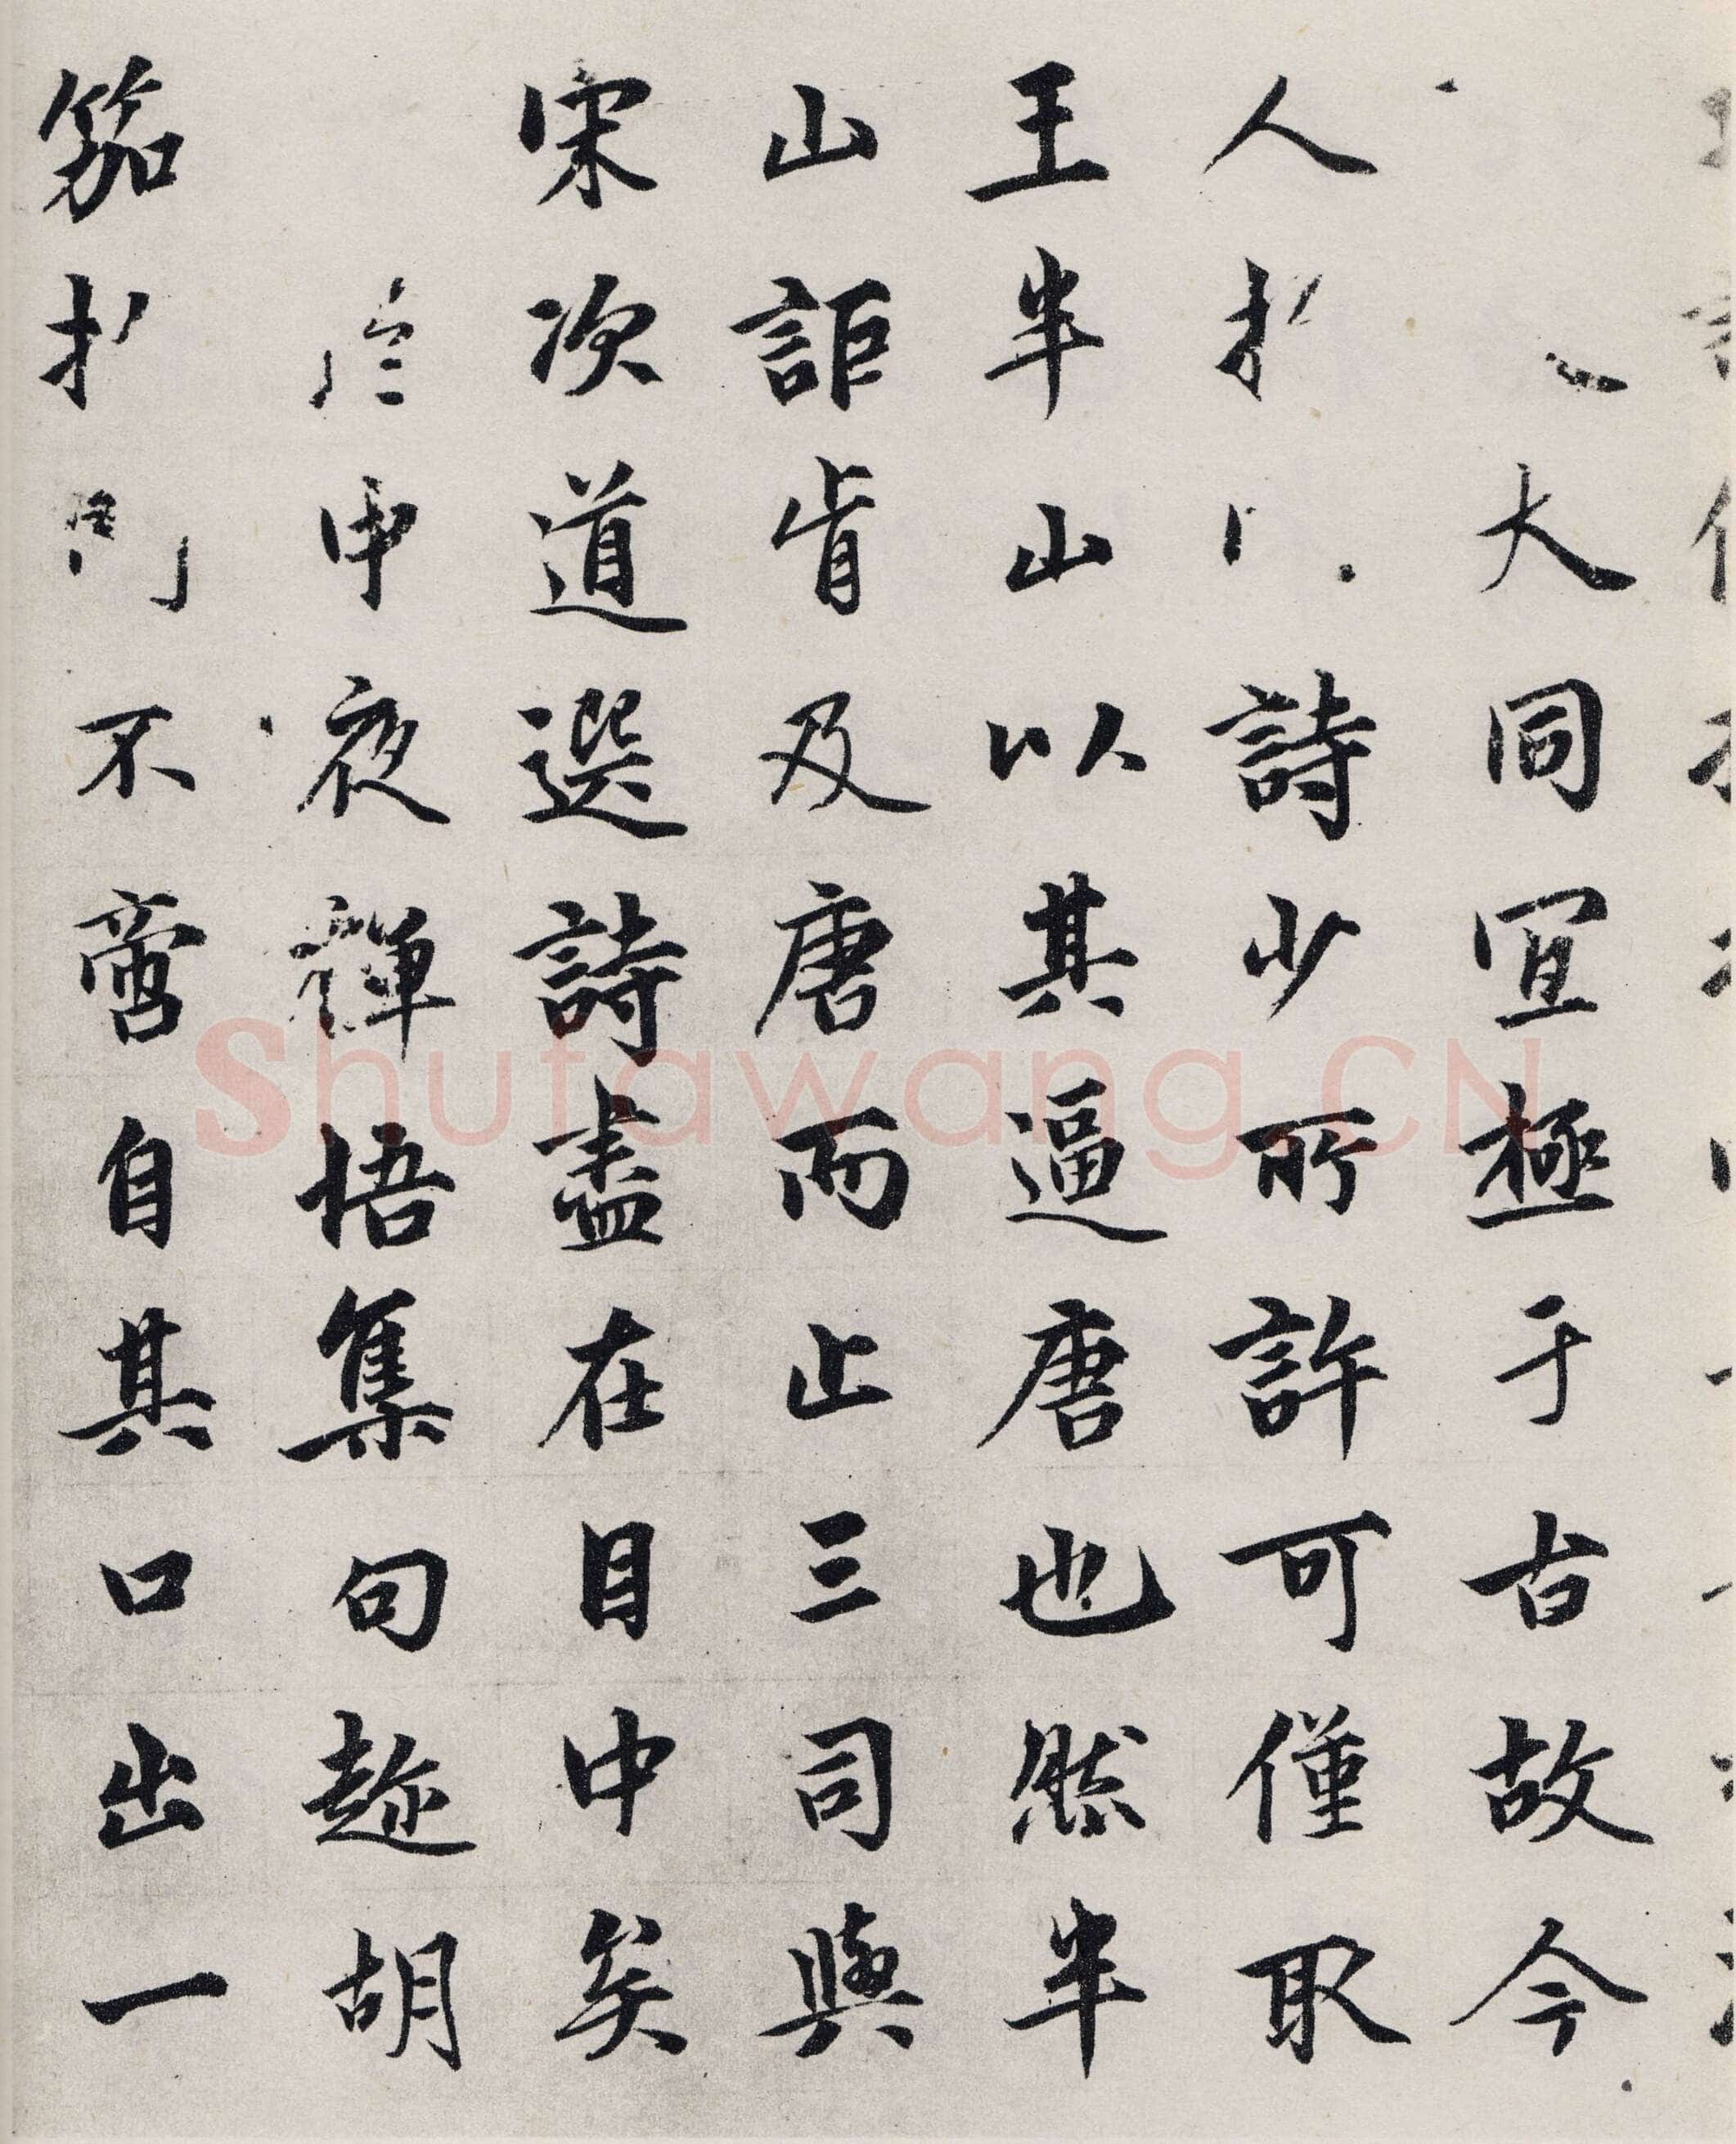 大同宜極于古故今
人於詩少所許可僅取
王半山以其逼唐也然半
山詎肯及唐而止三司與
宋次道選詩盡在目中矣
中夜禪悟集句趂胡
笳不啻自其口出一
Shufawang.CN